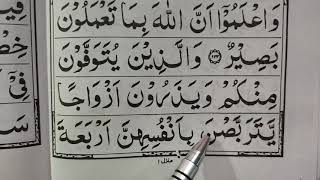 وَاعْلَمُوْٓا اَنَّ اللّٰهَ بِمَا تَعْمَلُوْنَ
بَصِيْرٌ ﴿۲۳۳﴾ وَالَّذِيْنَ يُتَوَفَّوْنَ
مِنْكُمْ وَيَذَرُوْنَ اَزْوَاجًا
يَّتَرَبَّصْنَ بِاَنْفُسِهِنَّ اَرْبَعَةَ
منزل ۱